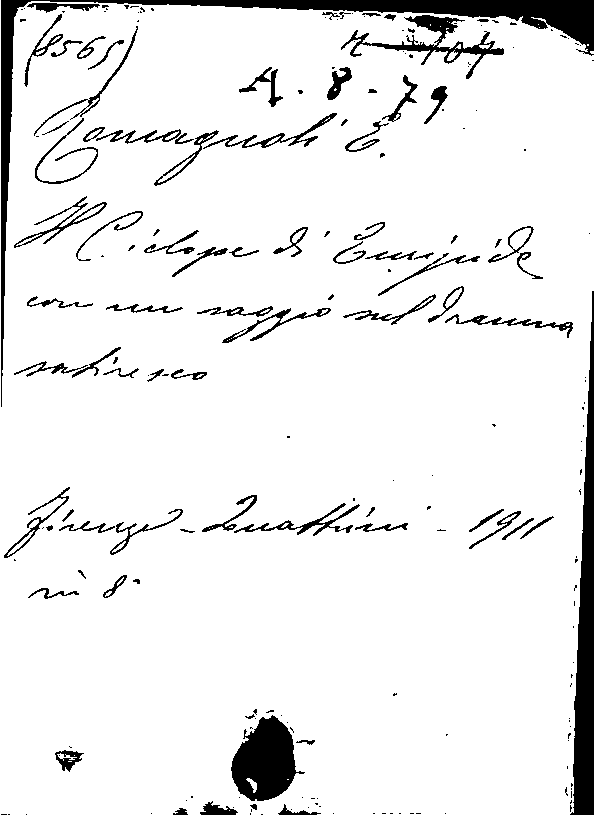 (8565)
A. 8 - 79
Romagnoli E.
Il Ciclope di Euripide
con un saggio sul dramma
satiresco
Firenze - Quattrini - 1911
in 8°